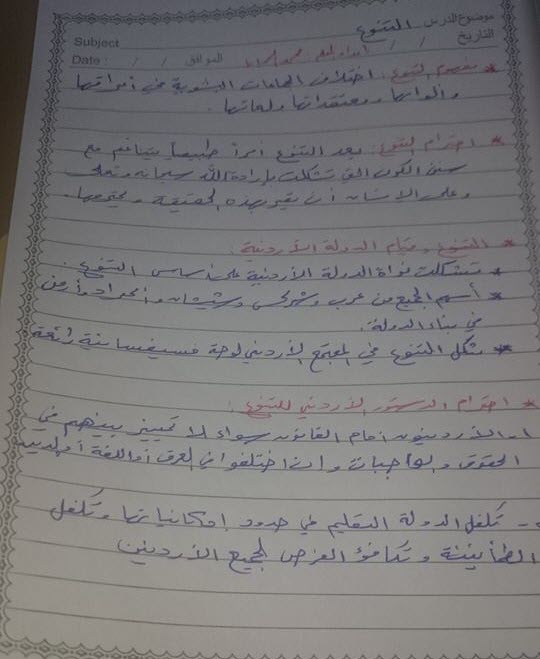 موضوع الدرس التنوع
Subject
التاريخ / / الموافق / /
Date :
* مفهوم التنوع : اختلاف الجماعات البشرية في أعراقها
وألوانها ومعتقداتها ولغاتها .
* احترام التنوع : يعد التنوع أمراً طبيعياً يتناغم مع
سنن الكون التي تشكلت بإرادة الله سبحانه وتعالى
وعلى الإنسان أن يقر بهذه الحقيقة ويحترمها .
* التنوع وقيام الدولة الأردنية :
* تشكلت نواة الدولة الأردنية على أساس التنوع .
* أسهم الجميع من عرب وشركس وشيشان وأكراد وأرمن
في بناء الدولة .
* شكل التنوع في المجتمع الأردني لوحة فسيفسائية رائعة
* احترام الدستور الأردني للتنوع :
١- الأردنيون أمام القانون سواء لا تمييز بينهم في
الحقوق والواجبات وإن اختلفوا في العرق أو اللغة أو الدين
- تكفل الدولة التعليم في حدود إمكانياتها وتكفل
الطمأنينة وتكافؤ الفرص لجميع الأردنيين